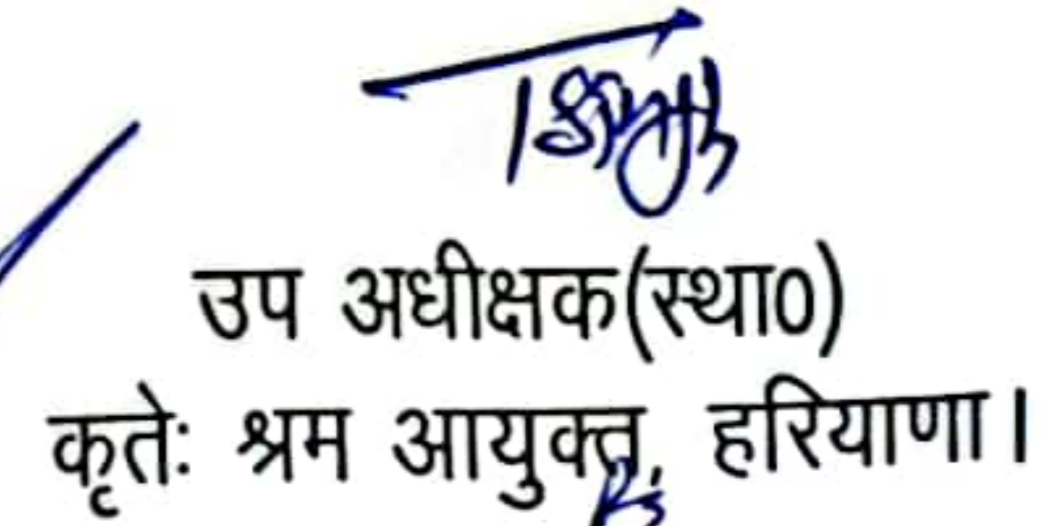 उप अधीक्षक(स्था0)
कृतेः श्रम आयुक्त, हरियाणा।